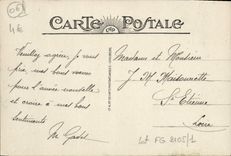 CARTE POSTALE
06
4€
Veuillez agréer, je vous
prie, mes bons voeux
pour l'année nouvelle
et croire à mes bons
sentiments
Madame et Monsieur
J. M.
St Etienne
Loire
Lot FG 2105/1